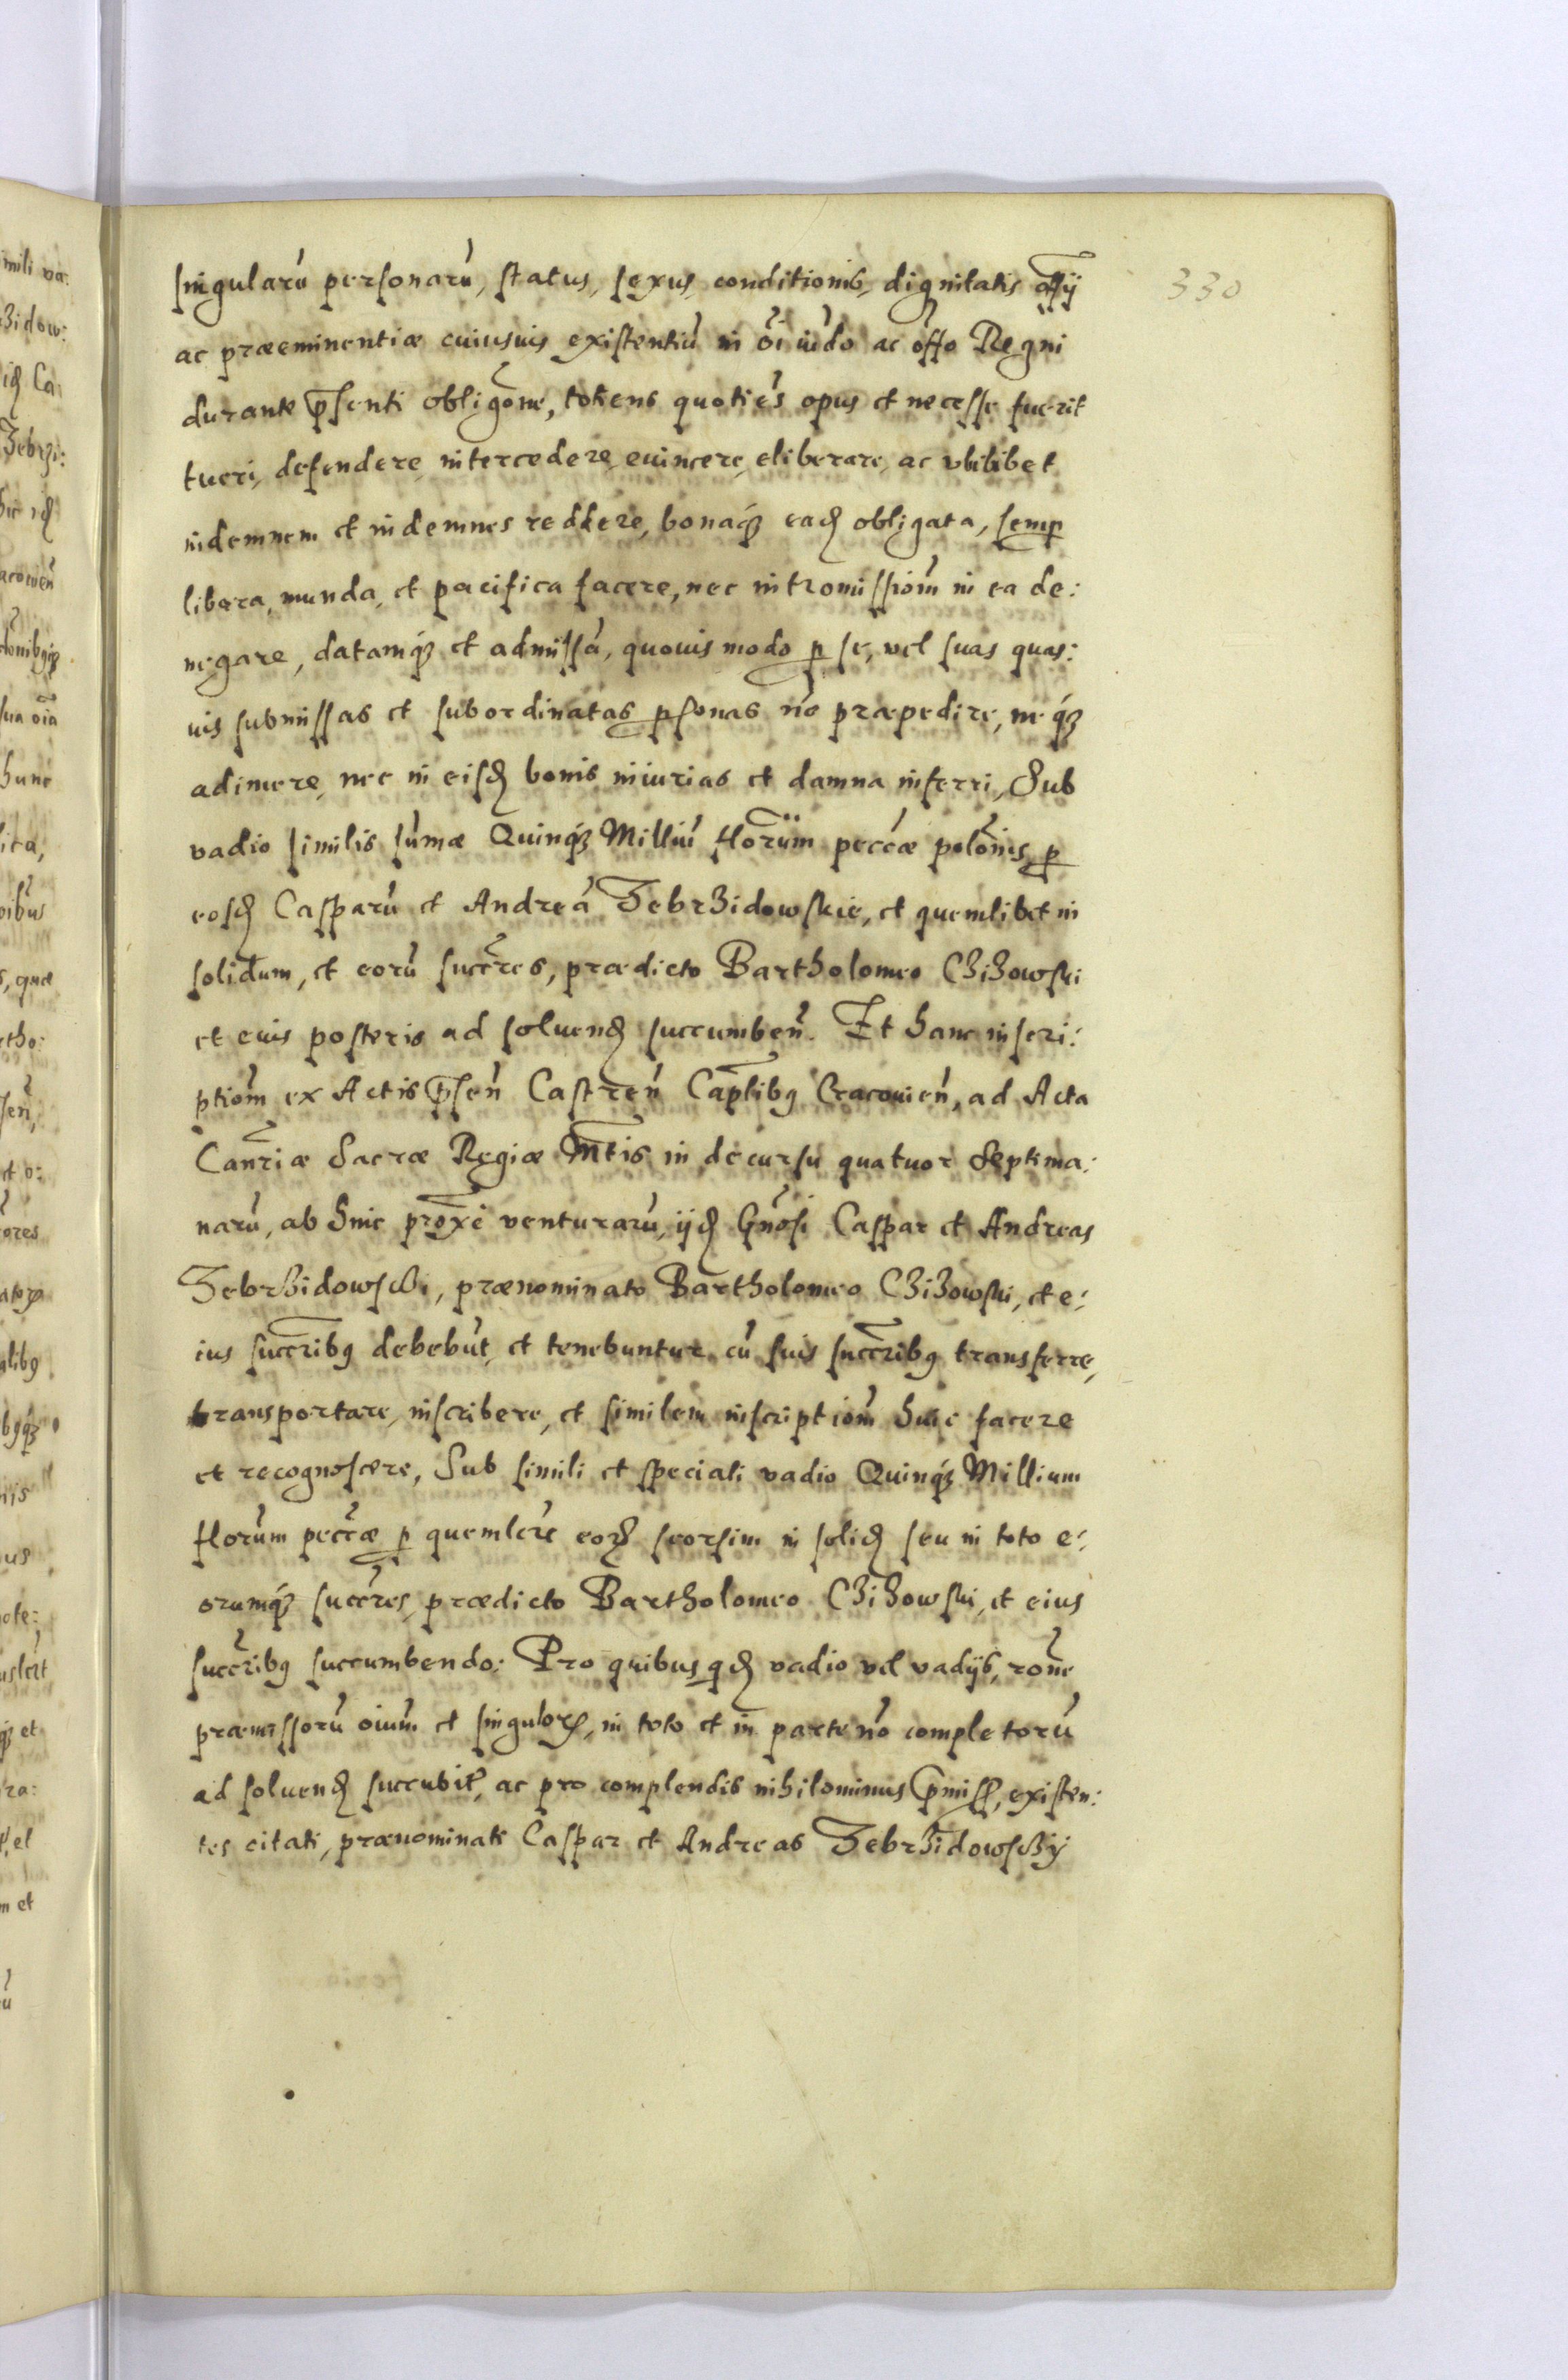 330
singularũ personarũ, status, sexus, conditionis, dignitatis offÿ
ac præeminentiæ cuiusuis existentiũ in õi iudo ac offo Regni
durante p̃senti obligõne, totiens quoties opus et necesse fuerit
tueri, defendere intercedere, euincere, eliberare, ac vbilibet
indemnem et indemnes reddere, bonaq́ꝫ eadꝫ obligata, semꝑ
libera, munda, et pacifica facere, nec intromissiom̃ in ea de:
negare, datamq́ꝫ et admissã, quouis modo ꝑ se, vel suas quas:
uis submissas et subordinatas ꝑsonas nõ præpedire, neq́ꝫ
adimere, nec in eisdꝫ bonis iniurias et damna inferri, Sub
vadio similis sum̃æ Quinq́ꝫ Milliũ florũm peccæ polonis, ꝑ
eosdꝫ Casparũ et Andreã Zebrzidowskie, et quemlibet in
solidum, et eorũ succ̃res, prædicto Bartholomeo Czizowski
et euis posteris ad soluendꝫ succumbeñ. Et hanc inscri:
ptiom̃ ex Actis p̃señ Castreñ Caplĩbꝰ Cracouieñ, ad Acta
Canr̃iæ Sacræ Regiæ Mt̃is in decursu quatuor Septima:
narũ, ab hinc prox̃e venturarũ, ijdꝫ Gñosi Caspar et Andreas
Zebrzidowschi, prænominato Bartholomeo Czizowski, et e:
ius succr̃ibꝰ debebũt, et tenebuntur cũ suis succr̃ibꝰ transferre,
transportare, inscribere, et similem inscriptiom̃ huic facere
et recognoscere, Sub simili et speciali vadio Quinq́ꝫ Millium
florũm peccæ ꝑ quemlꝫ eorꝝ seorsim in solidꝫ seu in toto e:
orumq́ꝫ succ̃res, prædicto Bartholomeo Czizowski, et eius
succr̃ibꝰ succumbendo: Pro quibus qdꝫ vadio vel vadijs, rõne
præmissorũ oiũm et singulorꝝ, in toto et in parte nõ completorũ
ad soluendꝫ succubit̃, ac pro complendis nihilominus p̃miss̃, existen:
tes citati, prænominati Caspar et Andreas Zebrzidowschÿ